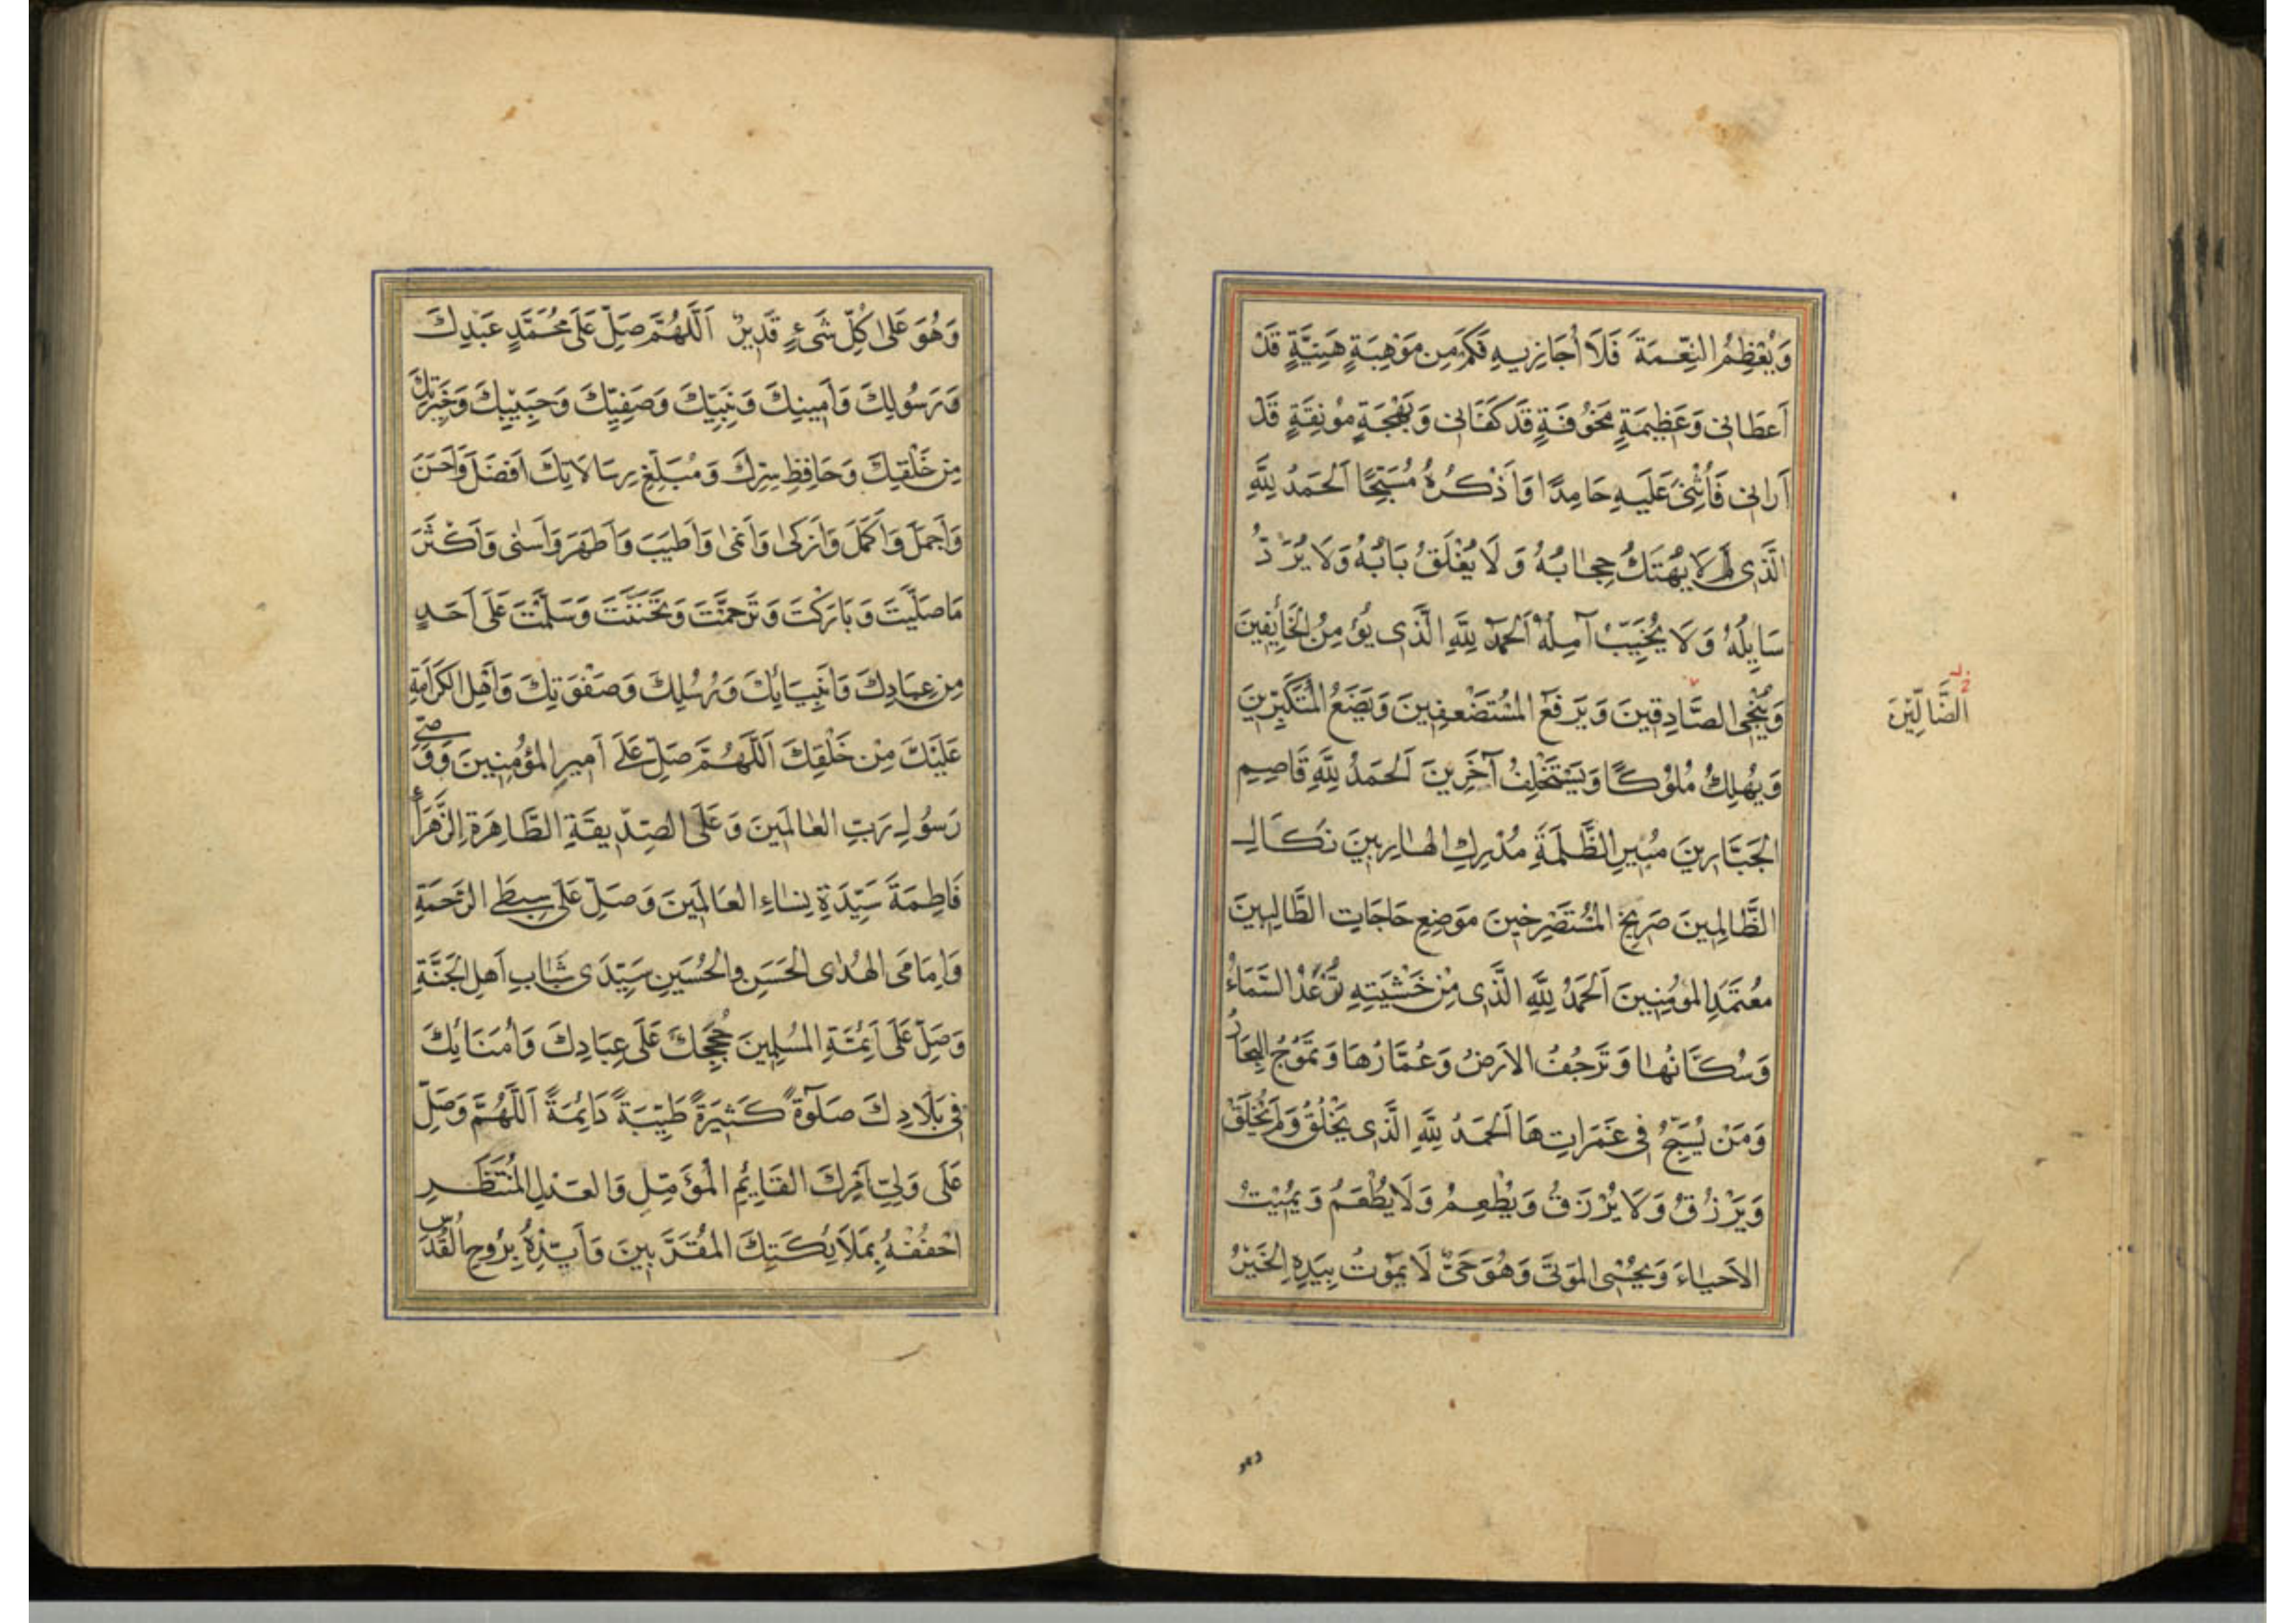 وَيُعْظِمُ النِّعْمَةَ فَلَا أُجَازِيهِ فَكَمْ مِن مَوْهِبَةٍ هَنِيئَةٍ قَدْ
اَعطَانِى وَعَظِيمَةٍ مَخُوفَةٍ قَدْ كَفَانِى وَبَهْجَةٍ مُونِقَةٍ قَدْ
اَرانِى فَاُثْنِى عَلَيهِ حَامِدًا وَاَذْكُرُهُ مُسَبِّحًا اَلحَمدُ لِلّٰهِ
الَّذِى لَا يُهْتَكُ حِجَابُهُ وَ لَا يُغْلَقُ بَابُهُ وَلَا يُرَدُّ
سَايِلُهُ وَ لَا يُخَيَّبُ آمِلُهُ اَلحَمدُ لِلّٰهِ الَّذِى يُؤمِنُ الْخَائِفِينَ
وَيُنْجِى الصَّادِقِينَ وَيَرفَعُ المُسْتَضْعَفِينَ وَيَضَعُ الْمُتَكَبِّرِينَ
الضَّالِّيْنَ
وَيُهلِكُ مُلُوكًا وَيَسْتَخْلِفُ آخَرِينَ اَلحَمدُ لِلّٰهِ قَاصِمِ
الجَبَّارِينَ مُبِيرِ الظَّلَمَةِ مُدْرِكِ الهَارِبِينَ نَكَالِ
الظَّالِمِينَ صَرِيخِ المُسْتَصْرِخِينَ مَوضِعِ حَاجَاتِ الطَّالِبِينَ
مُعتَمَدِ المُومِنِينَ اَلحَمدُ لِلّٰهِ الَّذِى مِنْ خَشْيَتِهِ تُرعَدُ السَّمَاءُ
وَسُكَّانُهَا وَتَرجُفُ الاَرضُ وَعُمَّارُهَا وَتَمَوَّجُ البِحَارُ
وَمَنْ يُسَبِّحُ فِى غَمَرَاتِهَا اَلحَمدُ لِلّٰهِ الَّذِى يَخْلُقُ وَلَمْ يُخْلَقْ
وَيَرْزُقُ وَلَا يُرْزَقُ وَيُطْعِمُ وَلَا يُطْعَمُ وَيُمِيتُ
الاَحيَاءَ وَيُحْيِى المَوتَى وَهُوَ حَىٌّ لَا يَمُوتُ بِيَدِهِ الْخَيْرُ
وَهُوَ عَلٰى كُلِّ شَىْءٍ قَدِيرٌ اَللّٰهُمَّ صَلِّ عَلٰى مُحَمَّدٍ عَبْدِكَ
وَرَسُولِكَ وَاَمِينِكَ وَنَبِيِّكَ وَصَفِيِّكَ وَحَبِيبِكَ وَخِيَرَتِكَ
مِن خَلْقِكَ وَحَافِظِ سِرِّكَ وَمُبَلِّغِ رِسَالَاتِكَ اَفضَلَ وَاَحسَنَ
وَاَجمَلَ وَاَكمَلَ وَاَزكٰى وَاَنمٰى وَاَطيَبَ وَاَطهَرَ وَاَسنٰى وَاَكثَرَ
مَا صَلَّيتَ وَبَارَكْتَ وَتَرَحَّمْتَ وَتَحَنَّنتَ وَسَلَّمْتَ عَلٰى اَحَدٍ
مِن عِبَادِكَ وَاَنْبِيَائِكَ وَرُسُلِكَ وَصَفْوَتِكَ وَاَهلِ الكَرَامَةِ
عَلَيْكَ مِنْ خَلْقِكَ اَللّٰهُمَّ صَلِّ عَلٰى اَمِيرِ المُؤمِنِينَ وَوَصِىِّ
رَسُولِ رَبِّ العَالَمِينَ وَعَلَى الصِّدِّيقَةِ الطَّاهِرَةِ الزَّهرَاءِ
فَاطِمَةَ سَيِّدَةِ نِسَاءِ العَالَمِينَ وَصَلِّ عَلٰى سِبطَىِ الرَّحمَةِ
وَاِمَامَىِ الهُدٰى الحَسَنِ وَالحُسَينِ سَيِّدَى شَبَابِ اَهلِ الجَنَّةِ
وَصَلِّ عَلٰى اَئِمَّةِ المُسلِمِينَ حُجَجِكَ عَلٰى عِبَادِكَ وَاُمَنَائِكَ
فِى بِلَادِكَ صَلٰوةً كَثِيرَةً طَيِّبَةً دَائِمَةً اَللّٰهُمَّ وَصَلِّ
عَلٰى وَلِىِّ اَمْرِكَ القَايِمِ الْمُؤَمَّلِ وَالعَدلِ المُنتَظَرِ
احْفُفْهُ بِمَلَايِكَتِكَ المُقَرَّبِينَ وَاَيِّدْهُ بِرُوحِ القُدُسِ